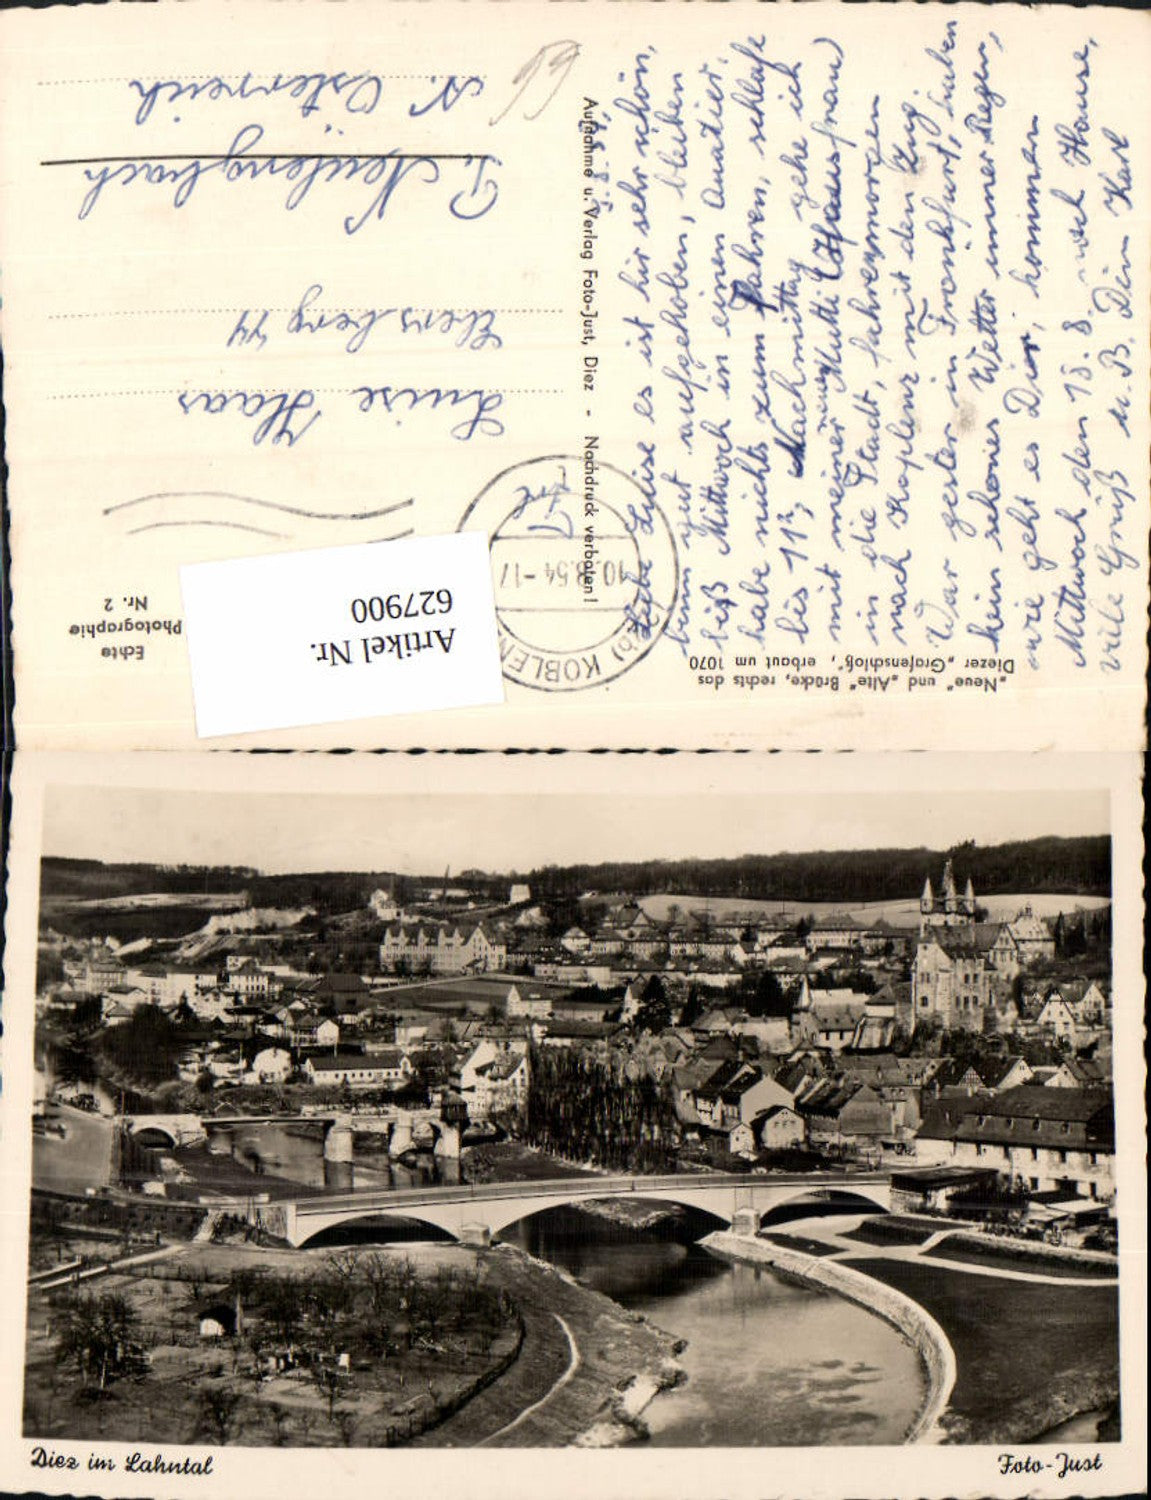 "Neue" und "Alte" Brücke, rechts das
Diezer "Grafenschloß", erbaut um 1070.
9.8.54
Liebe Luise es ist hir sehr schön,
binn gut aufgehoben, bleiben
biß Mittwoch in einen Quatier.
habe nichts zum Fahren, schlafe
bis 11½, Nachmittag gehe ich
mit meiner neuen Mutti (Hausfrau)
in die Stadt, fahren morgen
nach Koplenz mit den Zug.
War gester in Frankfurt, haben
kein schönes Wetter immer Regen,
wie geht es Dier, kommen
Mittwoch den 18.8. nach Hause,
viele Gruß u. B. Dein Karl
Aufnahme u. Verlag Foto-Just, Diez - Nachdruck verboten!
KOBLENZ
10.8.54-17
Echte
Photographie
Nr. 2
Artikel Nr.
627900
Luise Haas
Ebersberg 44
P. Neulengbach
N. Österreich
Diez im Lahntal
Foto-Just